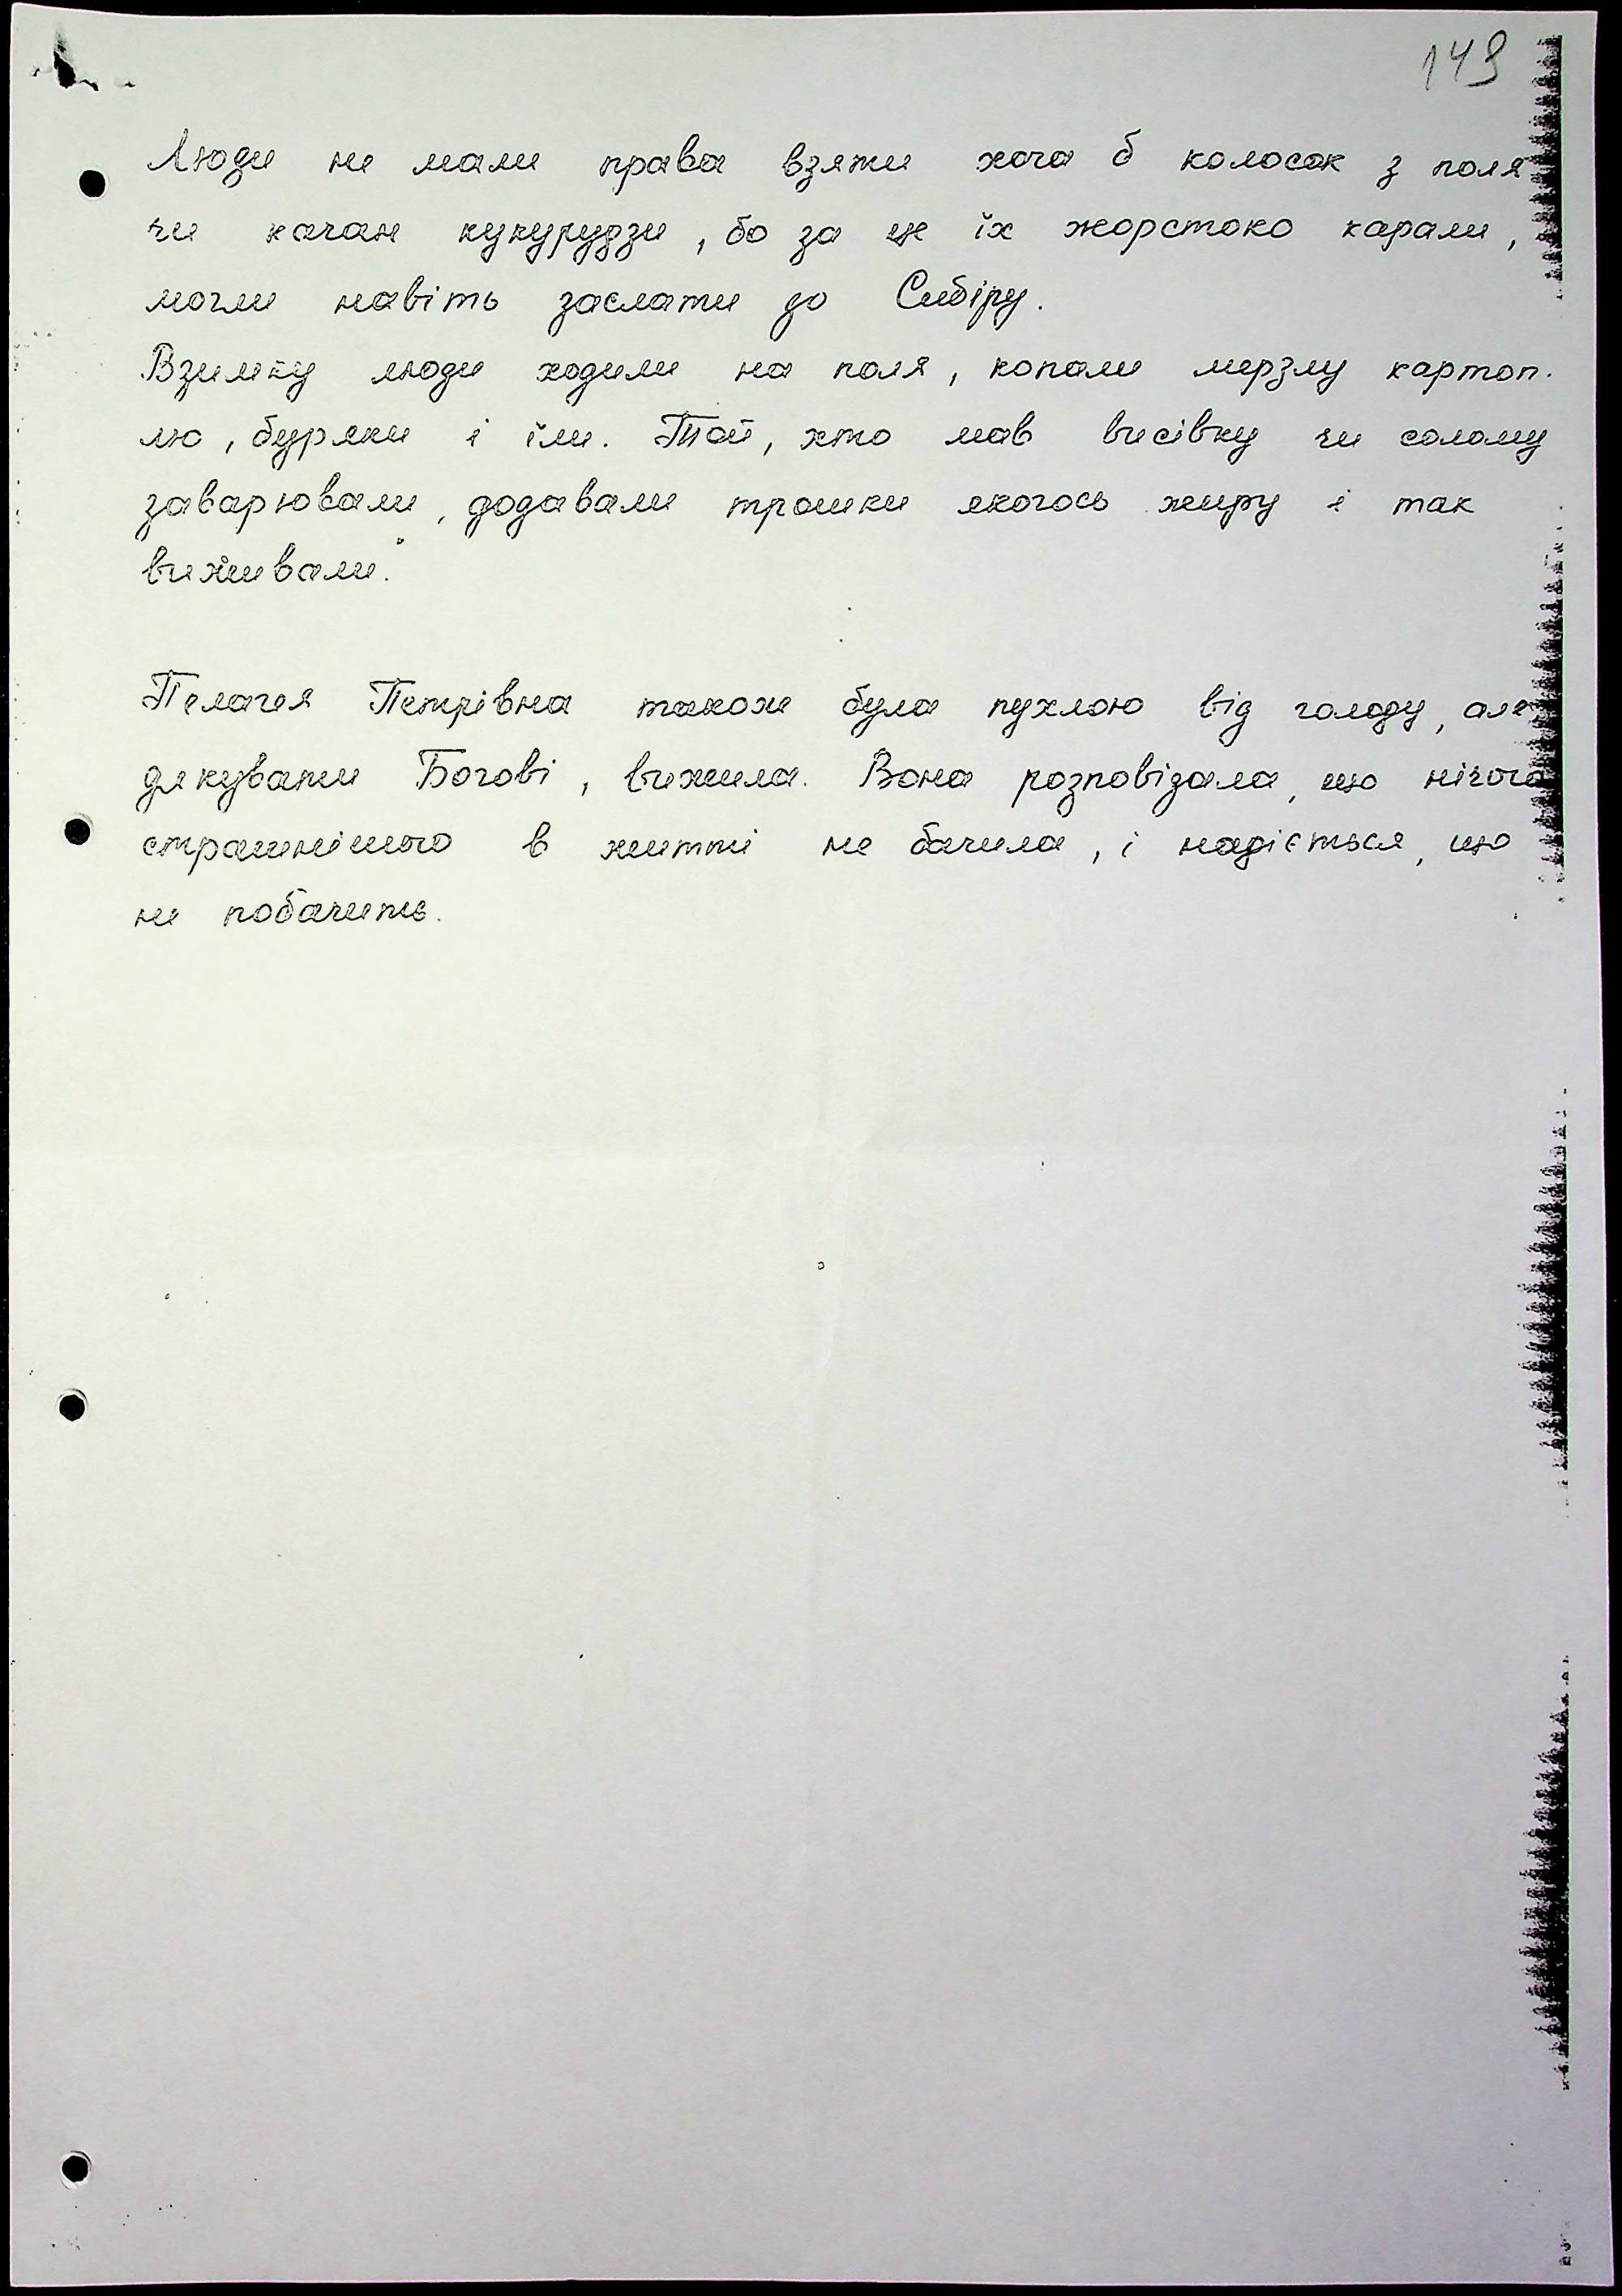 149
Люди не мали права взяти хоча б колосок з поля
чи качан кукурудзи, бо за це їх жорстоко карали,
могли навіть заслати до Сибіру.
Взимку люди ходили на поля, копали мерзлу картоп-
лю, буряки і їли. Той, хто мав висівку чи солому
заварювали, додавали трошки якогось жиру і так
виживали.
Пелагея Петрівна також була пухлою від голоду, але
дякувати Богові, вижила. Вона розповізала, що нічого
страшнішого в житті не бачила, і надіється, що
не побачить.